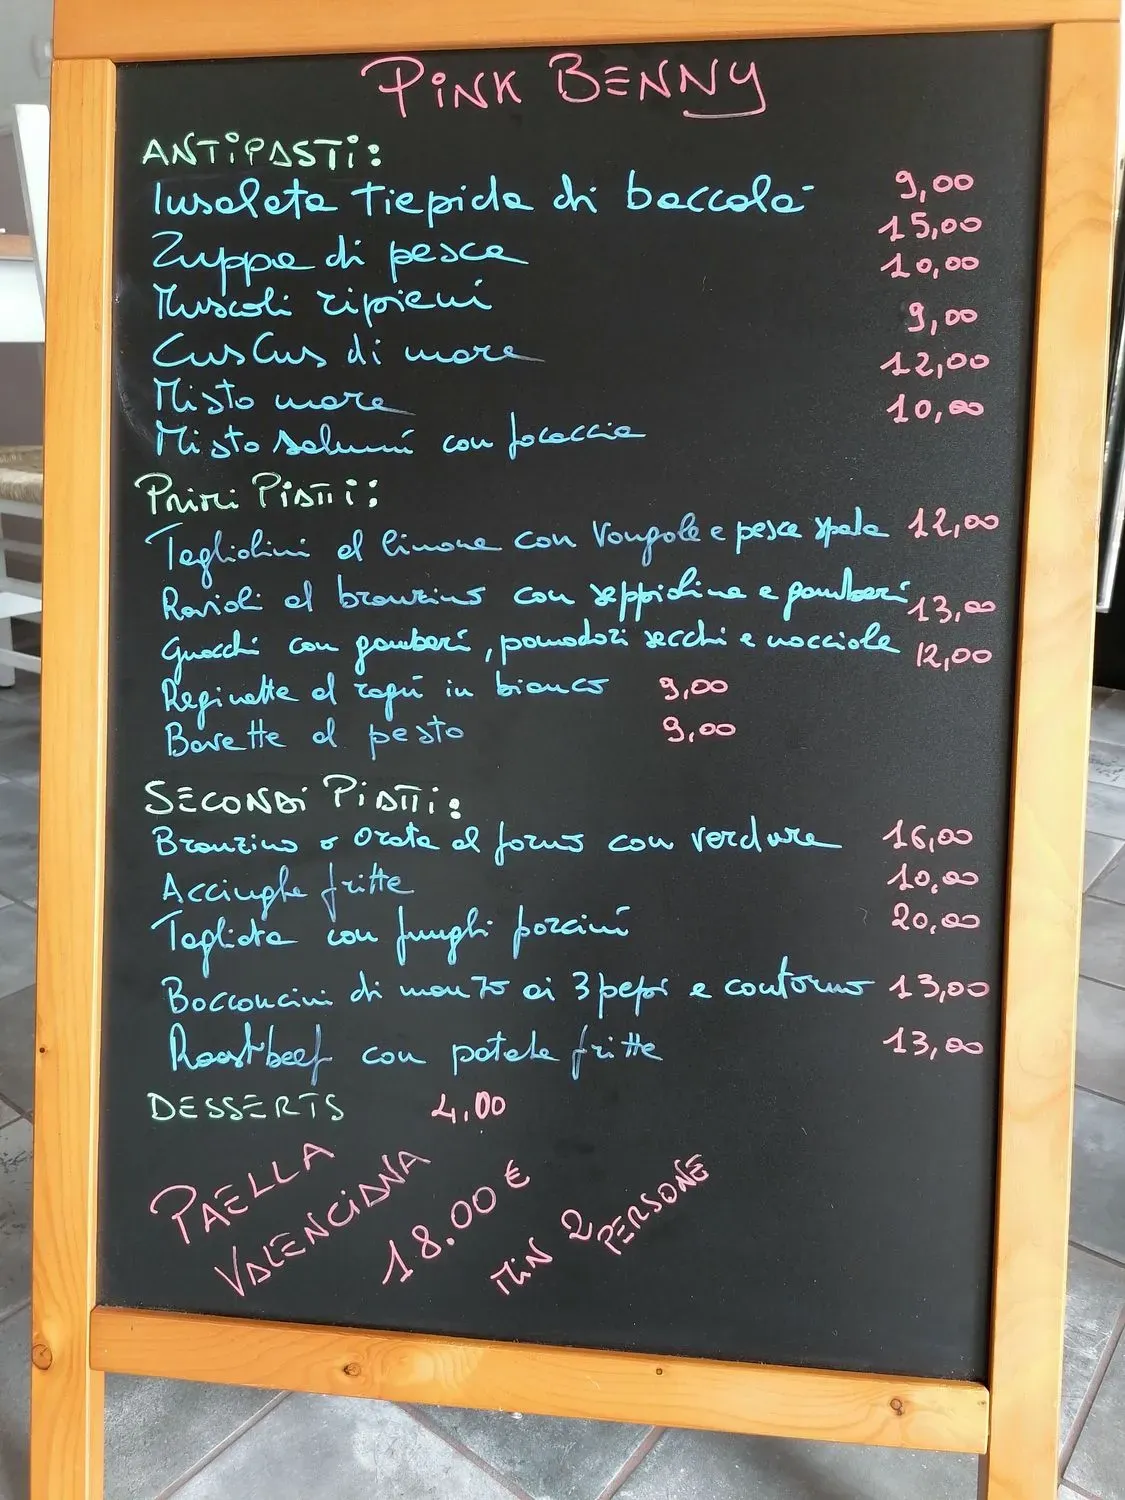 PINK BENNY
ANTIPASTI:
Insalata tiepida di baccalà 9,00
Zuppa di pesce 15,00
Muscoli ripieni 10,00
CusCus di mare 9,00
Misto mare 12,00
Misto salumi con focaccia 10,00
PRIMI PIATTI:
Tagliolini al limone con vongole e pesce spada 12,00
Ravioli al branzino con seppioline e gamberi 13,00
Gnocchi con gamberi, pomodori secchi e nocciole 12,00
Reginette al ragù in bianco 9,00
Bavette al pesto 9,00
SECONDI PIATTI:
Branzino o Orata al forno con verdure 16,00
Acciughe fritte 10,00
Tagliata con funghi porcini 20,00
Bocconcini di manzo ai 3 pepi e contorno 13,00
Roastbeef con patate fritte 13,00
DESSERTS 4,00
PAELLA
VALENCIANA
18.00 €
MIN 2
PERSONE